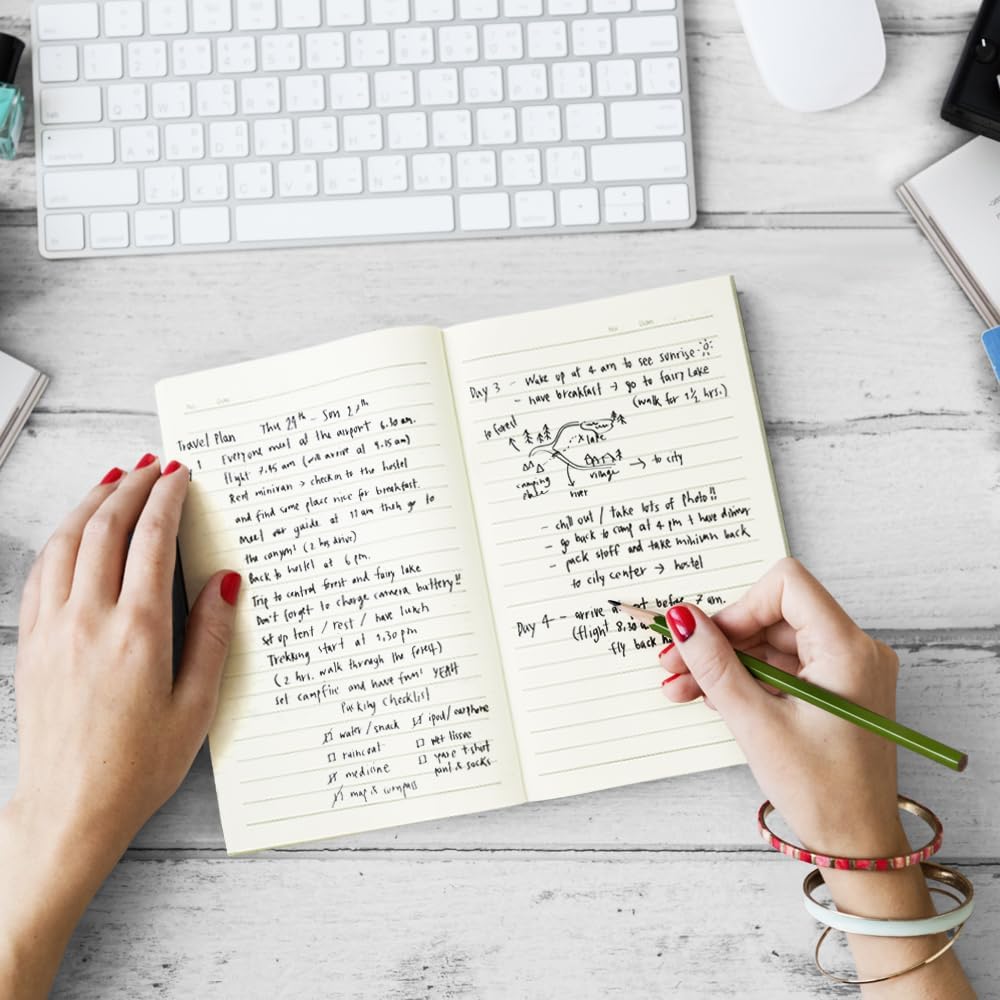 Travel Plan Thu 29th - Sun 2nd
1 Everyone meet at the airport 6.30 am.
flight 7.45 am (will arrive at 9.15 am)
Rent minivan → checkin to the hostel
and find some place nice for breakfast.
Meet our guide at 11 am then go to
the canyon! (2 hrs drive)
Back to hostel at 6 pm.
Trip to central forest and fairy lake
Don't forget to charge camera battery!!
set up tent / rest / have lunch
Trekking start at 1.30 pm
(2 hrs. walk through the forest)
set campfire and have fun! YEAH
Packing Checklist
water / snack
ipod / earphone
raincoat
wet tissue
medicine
t-shirt
pant & socks
map & compass
Day 3 - Wake up at 4 am to see sunrise
- have breakfast → go to fairy Lake
(walk for 1 1/2 hrs.)
to forest
x lake
camping
village → to city
river
- chill out / take lots of photo!!
- go back to camp at 4 pm & have dinner
- pack stuff and take minivan back
to city center → hostel
Day 4 - arrive before 7 am.
(flight 8.30
fly back